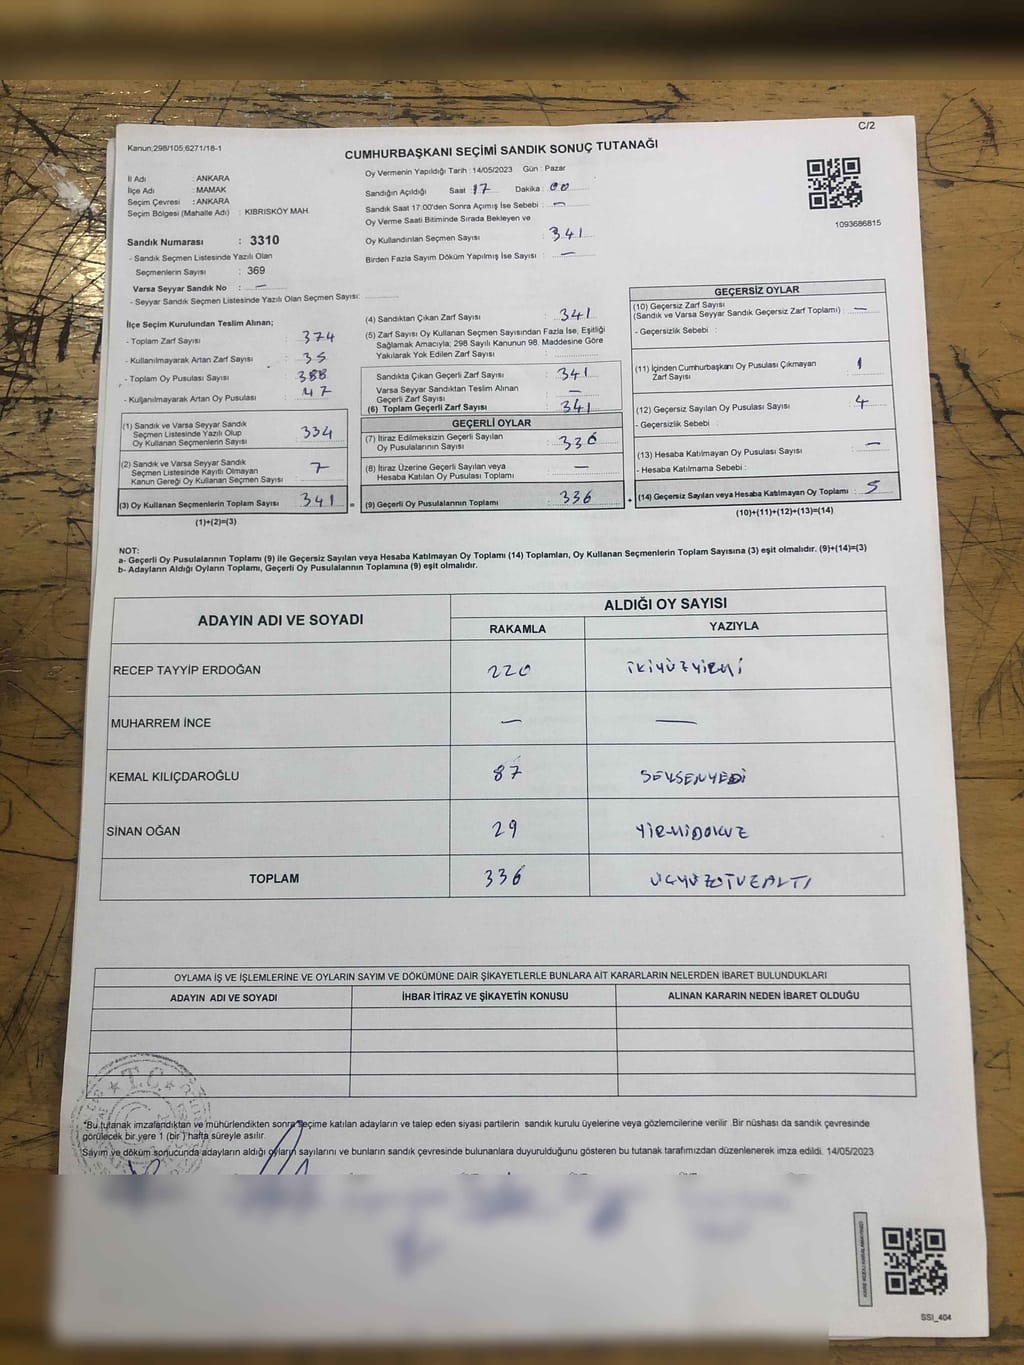 C/2
Kanun;298/105,6271/18-1
CUMHURBAŞKANI SEÇİMİ SANDIK SONUÇ TUTANAĞI
İl Adı : ANKARA
İlçe Adı : MAMAK
Seçim Çevresi : ANKARA
Seçim Bölgesi (Mahalle Adı) : KIBRISKÖY MAH.
Sandık Numarası : 3310
- Sandık Seçmen Listesinde Yazılı Olan
Seçmenlerin Sayısı : 369
Varsa Seyyar Sandık No : —
- Seyyar Sandık Seçmen Listesinde Yazılı Olan Seçmen Sayısı:
Oy Vermenin Yapıldığı Tarih : 14/05/2023 Gün : Pazar
Sandığın Açıldığı Saat : 17 Dakika : 00
Sandık Saat 17:00'den Sonra Açımış İse Sebebi : —
Oy Verme Saati Bitiminde Sırada Bekleyen ve
Oy Kullandırılan Seçmen Sayısı : 341
Birden Fazla Sayım Döküm Yapılmış İse Sayısı : —
1093686815
İlçe Seçim Kurulundan Teslim Alınan;
- Toplam Zarf Sayısı : 374
- Kullanılmayarak Artan Zarf Sayısı : 35
- Toplam Oy Pusulası Sayısı : 388
- Kullanılmayarak Artan Oy Pusulası : 47
(1) Sandık ve Varsa Seyyar Sandık
Seçmen Listesinde Yazılı Olup
Oy Kullanan Seçmenlerin Sayısı : 334
(2) Sandık ve Varsa Seyyar Sandık
Seçmen Listesinde Kayıtlı Olmayan
Kanun Gereği Oy Kullanan Seçmen Sayısı : 7
(3) Oy Kullanan Seçmenlerin Toplam Sayısı : 341 =
(1)+(2)=(3)
(4) Sandıktan Çıkan Zarf Sayısı : 341
(5) Zarf Sayısı Oy Kullanan Seçmen Sayısından Fazla İse, Eşitliği
Sağlamak Amacıyla; 298 Sayılı Kanunun 98. Maddesine Göre
Yakılarak Yok Edilen Zarf Sayısı :
Sandıkta Çıkan Geçerli Zarf Sayısı : 341
Varsa Seyyar Sandıktan Teslim Alınan
Geçerli Zarf Sayısı : —
(6) Toplam Geçerli Zarf Sayısı : 341
GEÇERLİ OYLAR
(7) İtiraz Edilmeksizin Geçerli Sayılan
Oy Pusulalarının Sayısı : 336
(8) İtiraz Üzerine Geçerli Sayılan veya
Hesaba Katılan Oy Pusulası Toplamı : —
(9) Geçerli Oy Pusulalarının Toplamı : 336 +
GEÇERSİZ OYLAR
(10) Geçersiz Zarf Sayısı
(Sandık ve Varsa Seyyar Sandık Geçersiz Zarf Toplamı) : —
- Geçersizlik Sebebi :
(11) İçinden Cumhurbaşkanı Oy Pusulası Çıkmayan
Zarf Sayısı : 1
(12) Geçersiz Sayılan Oy Pusulası Sayısı : 4
- Geçersizlik Sebebi :
(13) Hesaba Katılmayan Oy Pusulası Sayısı : —
- Hesaba Katılmama Sebebi :
(14) Geçersiz Sayılan veya Hesaba Katılmayan Oy Toplamı : 5
(10)+(11)+(12)+(13)=(14)
NOT:
a- Geçerli Oy Pusulalarının Toplamı (9) ile Geçersiz Sayılan veya Hesaba Katılmayan Oy Toplamı (14) Toplamları, Oy Kullanan Seçmenlerin Toplam Sayısına (3) eşit olmalıdır. (9)+(14)=(3)
b- Adayların Aldığı Oyların Toplamı, Geçerli Oy Pusulalarının Toplamına (9) eşit olmalıdır.
ADAYIN ADI VE SOYADI ALDIĞI OY SAYISI
RAKAMLA YAZIYLA
RECEP TAYYİP ERDOĞAN 220 İKİYÜZYİRMİ
MUHARREM İNCE — —
KEMAL KILIÇDAROĞLU 87 SEKSENYEDİ
SİNAN OĞAN 29 YİRMİDOKUZ
TOPLAM 336 ÜÇYÜZOTUZALTI
OYLAMA İŞ VE İŞLEMLERİNE VE OYLARIN SAYIM VE DÖKÜMÜNE DAİR ŞİKAYETLERLE BUNLARA AİT KARARLARIN NELERDEN İBARET BULUNDUKLARI
ADAYIN ADI VE SOYADI İHBAR İTİRAZ VE ŞİKAYETİN KONUSU ALINAN KARARIN NEDEN İBARET OLDUĞU
T.C.
*Bu tutanak imzalandıktan ve mühürlendikten sonra seçime katılan adayların ve talep eden siyasi partilerin sandık kurulu üyelerine veya gözlemcilerine verilir .Bir nüshası da sandık çevresinde
görülecek bir yere 1 (bir ) hafta süreyle asılır.
Sayım ve döküm sonucunda adayların aldığı oyların sayılarını ve bunların sandık çevresinde bulunanlara duyurulduğunu gösteren bu tutanak tarafımızdan düzenlenerek imza edildi. 14/05/2023
SSI_404